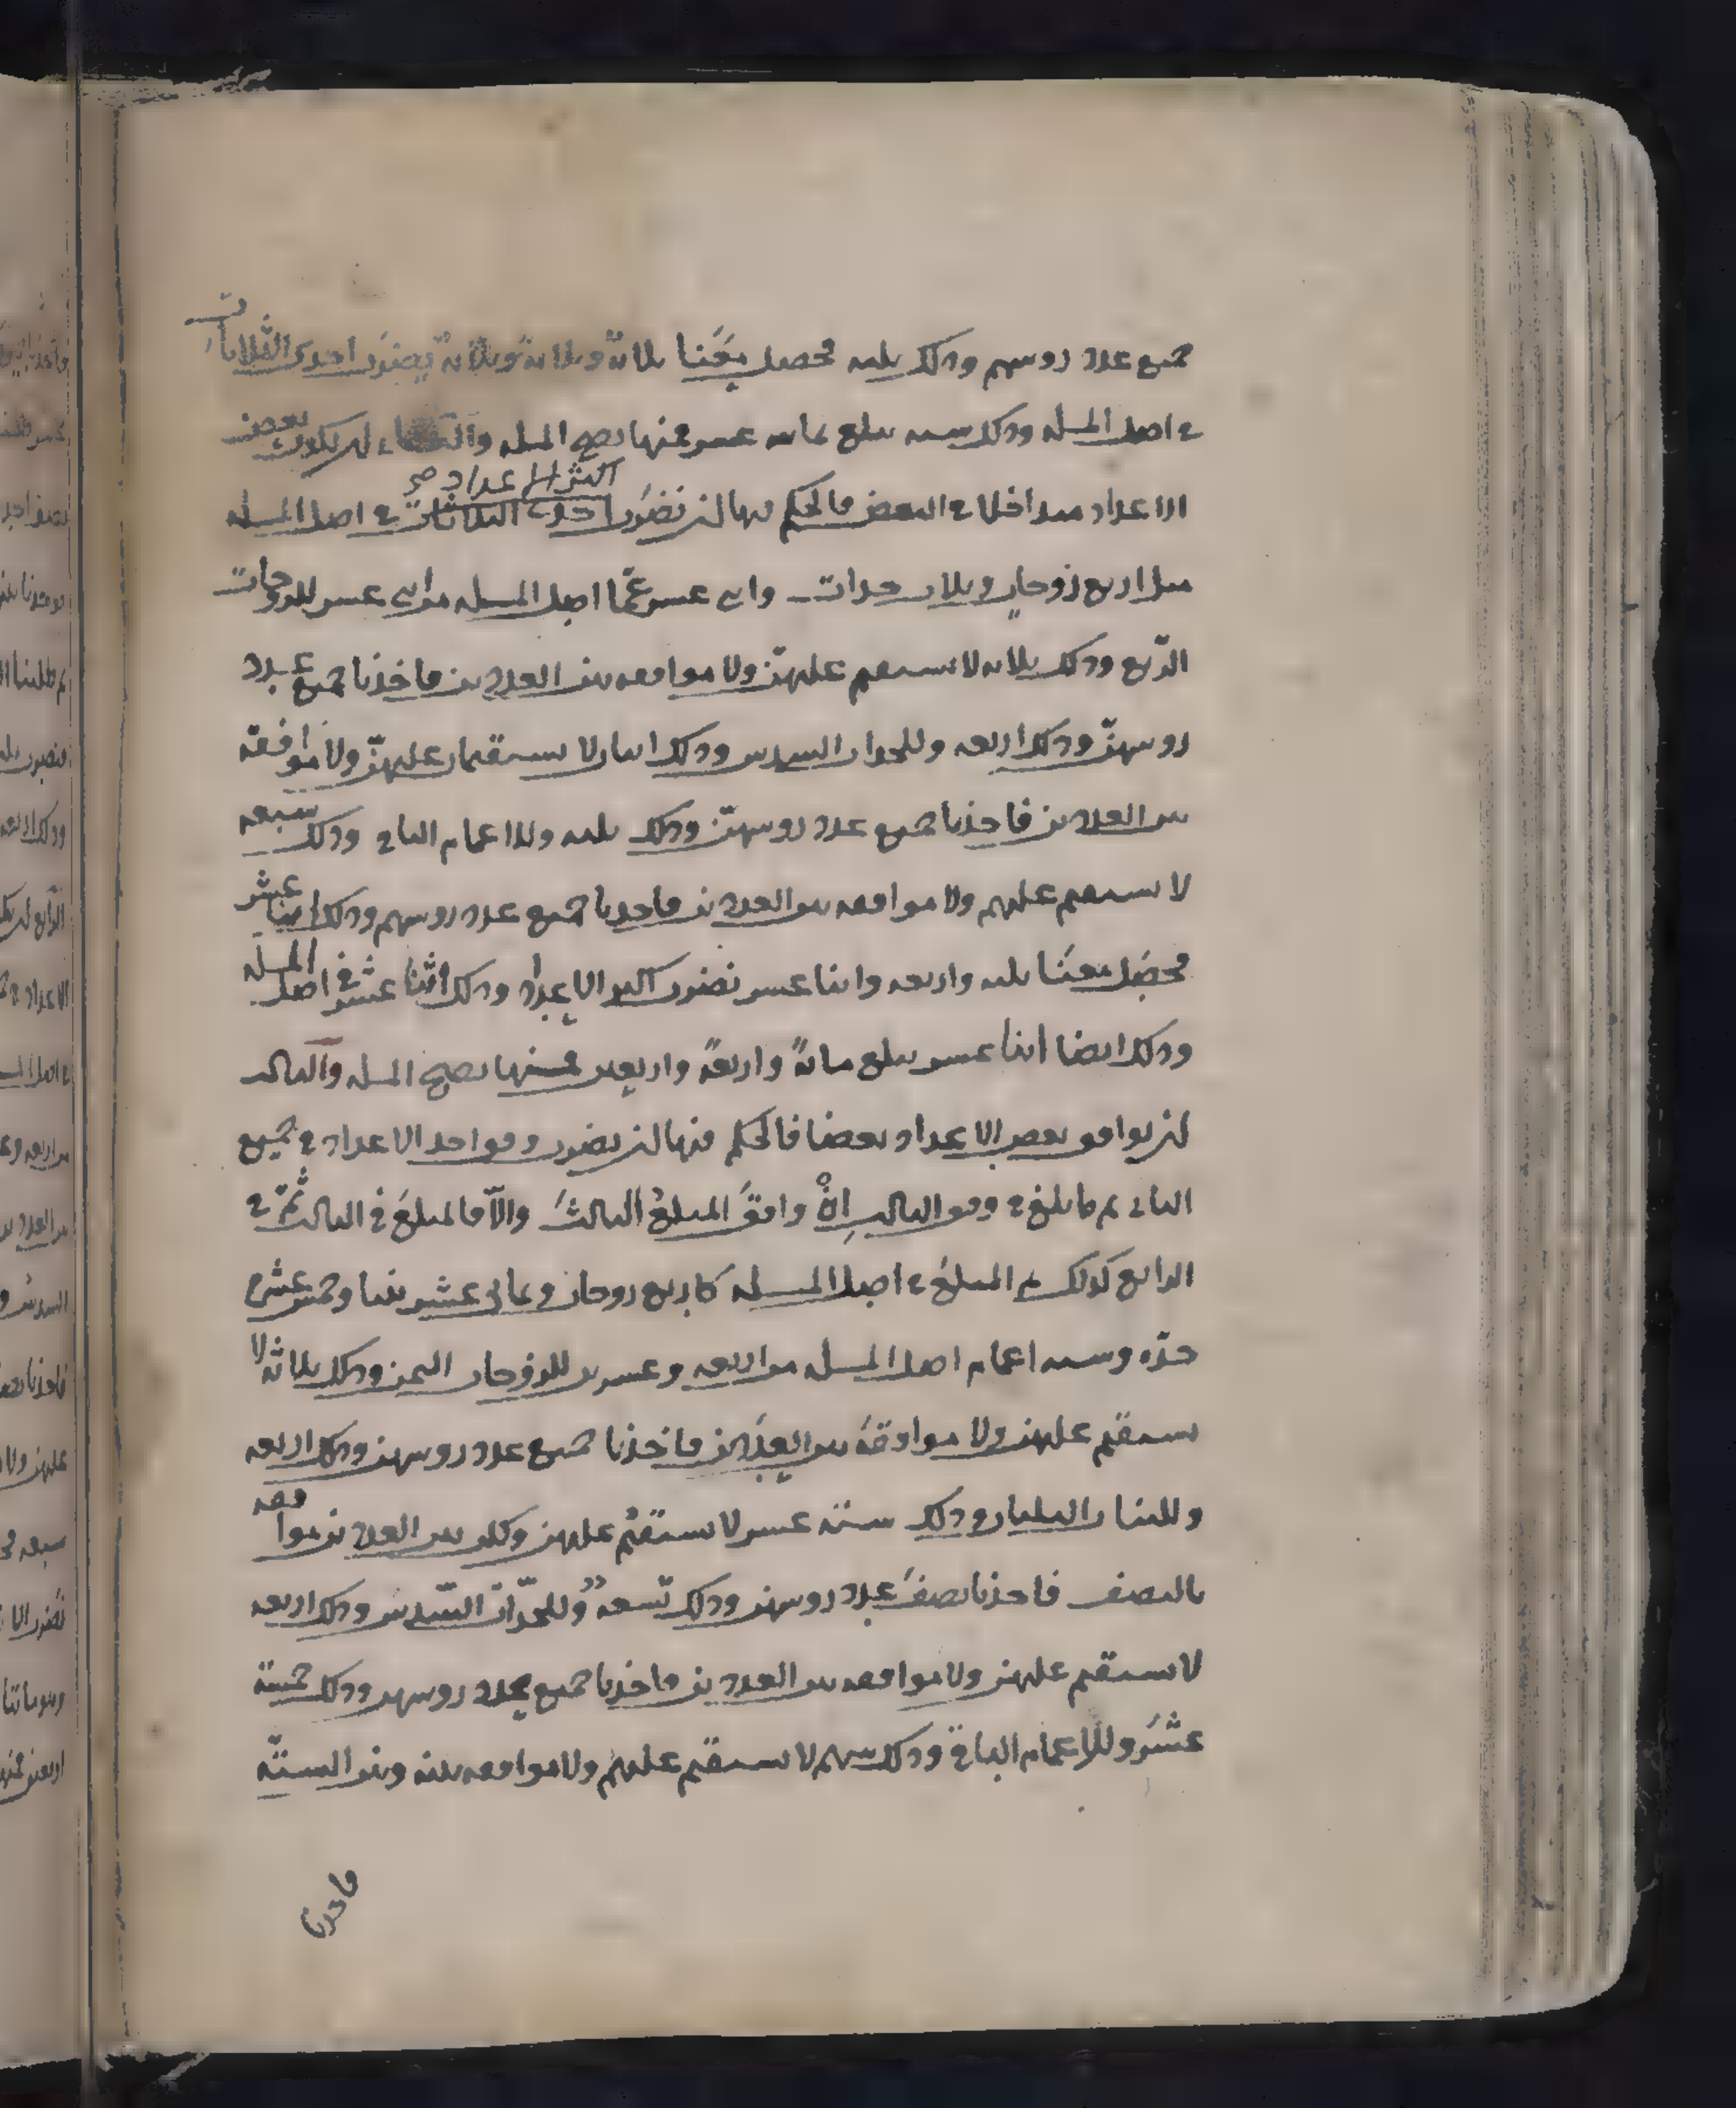 جميع عدد روسهم وذلك ثلثه فحصل معَنا ثلاثة وثلاثة وثلاثة يضرب احدى الثلاثات
في اصل المسله وذلك سته يبلغ ثمانيه عشر فمنها تصح المسله والثانى ان يكون بعض
الاعداد متداخلا في البعض فالحكم فيها ان تضرَب اكثر الاعداد صح احدى الثلاثات في اصل المسله
مثل اربع زوجاتٍ وثلاث جدات واثنى عشر عمّا اصل المسله من اثنى عشر للزوجات
الرّبع وذلك ثلاثه لا يستقيم عليهنّ ولا موافقه بين العددين فاخذنا جميع عدد
روسهنّ وذلك اربعه وللجدات السدس وذلك اثنان لا يستقيمان عليهنّ ولا موافقة
بين العددين فاخذنا جميع عدد روسهنّ وذلك ثلثه وللاعمام الباقى وذلك سبعه
لا يستقيم عليهم ولا موافقه بين العددين فاخذنا جميع عدد روسهم وذلك اثنا عشر
فحصَل معنَا ثلثه واربعه واثنا عشر تضرب اكبر الاعداد وذلك اثنا عشر في اصل المسله
وذلك ايضا اثنا عشر يبلغ مائةً واربعةً واربعين فمنها تصح المسله والثالث
ان يوافق بعض الاعداد بعضا فالحكم فيها ان يضرب وفق احد الاعداد في جميع
الثانى ثم ما بلغ في وفق الثالث اِنْ وافقَ المبلغُ الثالثَ والاّ فالمبلغَ في الثالث ثمّ في
الرابع كذلك ثم المبلغَ في اصل المسله كاربع زوجات وثمانى عشر بنتا وخمس عشرة
جدّه وسته اعمام اصل المسله من اربعه وعشرين للزوجات الثمن وذلك ثلاثة لا
يستقيم عليهن ولا موافقة بين العددين فاخذنا جميع عدد روسهن وذلك اربعه
وللبنات الثلثان وذلك ستة عشر لا يستقيُم عليهن ولكن بين العددين موافقه
بالنصف فاخذنا نصفَ عدد روسهن وذلك تسعة وللجدّات السّدس وذلك اربعه
لا يستقيم عليهن ولا موافقه بين العددين فاخذنا جميع عدد روسهن وذلك خمسة
عشَرَ وللاعمام الباقى وذلك سهم لا يستقيم عليهم ولا موافقه بينه وبين الستّه
فاخذنا